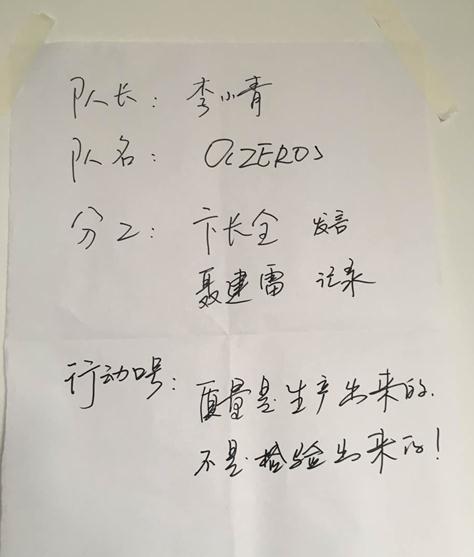 队长：李小青
队名：OCZEROS
分工：卞长全 发言
聂建雷 记录
行动号：质量是生产出来的.
不是检验出来的！